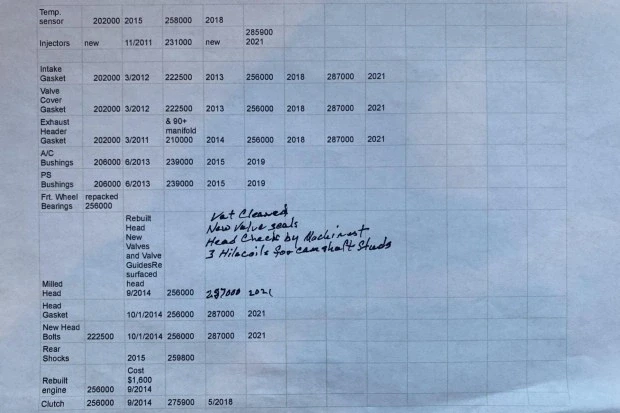 Temp.
sensor 202000 2015 258000 2018
285900
Injectors new 11/2011 231000 new 2021
Intake
Gasket 202000 3/2012 222500 2013 256000 2018 287000 2021
Valve
Cover
Gasket 202000 3/2012 222500 2013 256000 2018 287000 2021
Exhaust & 90+
Header manifold
Gasket 202000 3/2011 210000 2014 256000 2018 287000 2021
A/C
Bushings 206000 6/2013 239000 2015 2019
PS
Bushings 206000 6/2013 239000 2015 2019
Frt. Wheel repacked
Bearings 256000
Rebuilt
Head
New
Valves
and Valve
GuidesRe
surfaced
Milled head
Head 9/2014 256000 287000 2021
Vat Cleaned
New Valve seals
Head Check by Machinist
3 Hilacoils for camshaft Studs
Head
Gasket 10/1/2014 256000 287000 2021
New Head
Bolts 222500 10/1/2014 256000 287000 2021
Rear
Shocks 2015 259800
Cost
Rebuilt $1,600
engine 256000 9/2014
Clutch 256000 9/2014 275900 5/2018